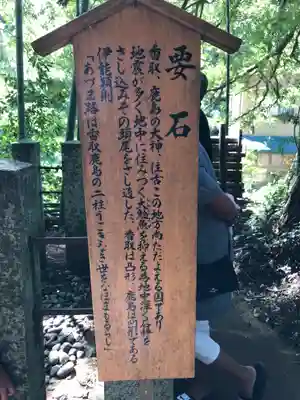 要石
香取、鹿島の大神、往古この地方尚ただよえる国であり
地震が多く、地中に住みつく大鯰魚を抑える為地中深く石棒を
さし込みその頭尾をさし通した。香取は凸形、鹿島は凹形である
伊能頴則
「あづま路は香取鹿島の二柱うごきなき世をなほまもるらし」